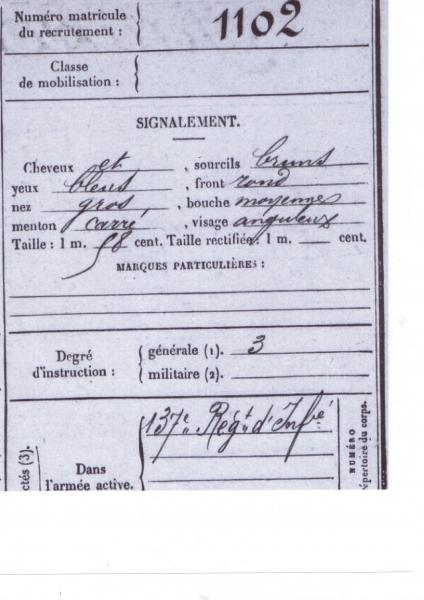 Numéro matricule
du recrutement : 1102
Classe
de mobilisation :
SIGNALEMENT.
Cheveux et , sourcils bruns
yeux bleus , front rond
nez gros , bouche moyenne
menton carré , visage anguleux
Taille : 1 m. 58 cent. Taille rectifiée : 1 m. cent.
MARQUES PARTICULIÈRES :
Degré
d'instruction :
générale (1). 3
militaire (2).
137e Régt d'Infie
Dans
l'armée active.
NUMÉRO
répertoire du corps.
ctés (3).